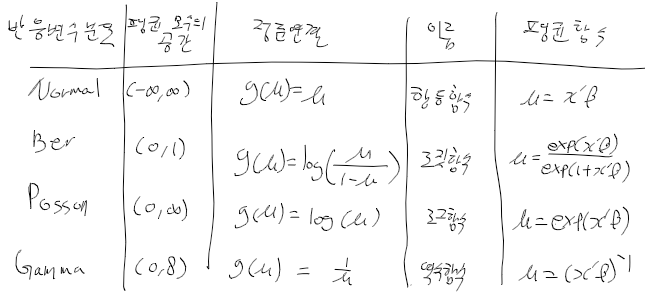 반응변수분포 평균 모수의 공간 정준연결 이름 평균 함수
Normal (-∞,∞) g(μ)=μ 항등함수 μ = x'β
Ber (0,1) g(μ)=log(μ/(1-μ)) 로짓함수 μ = exp(x'β)/exp(1+x'β)
Posson (0,∞) g(μ) = log(μ) 로그함수 μ = exp(x'β)
Gamma (0,8) g(μ) = 1/μ 역수함수 μ = (x'β)^-1